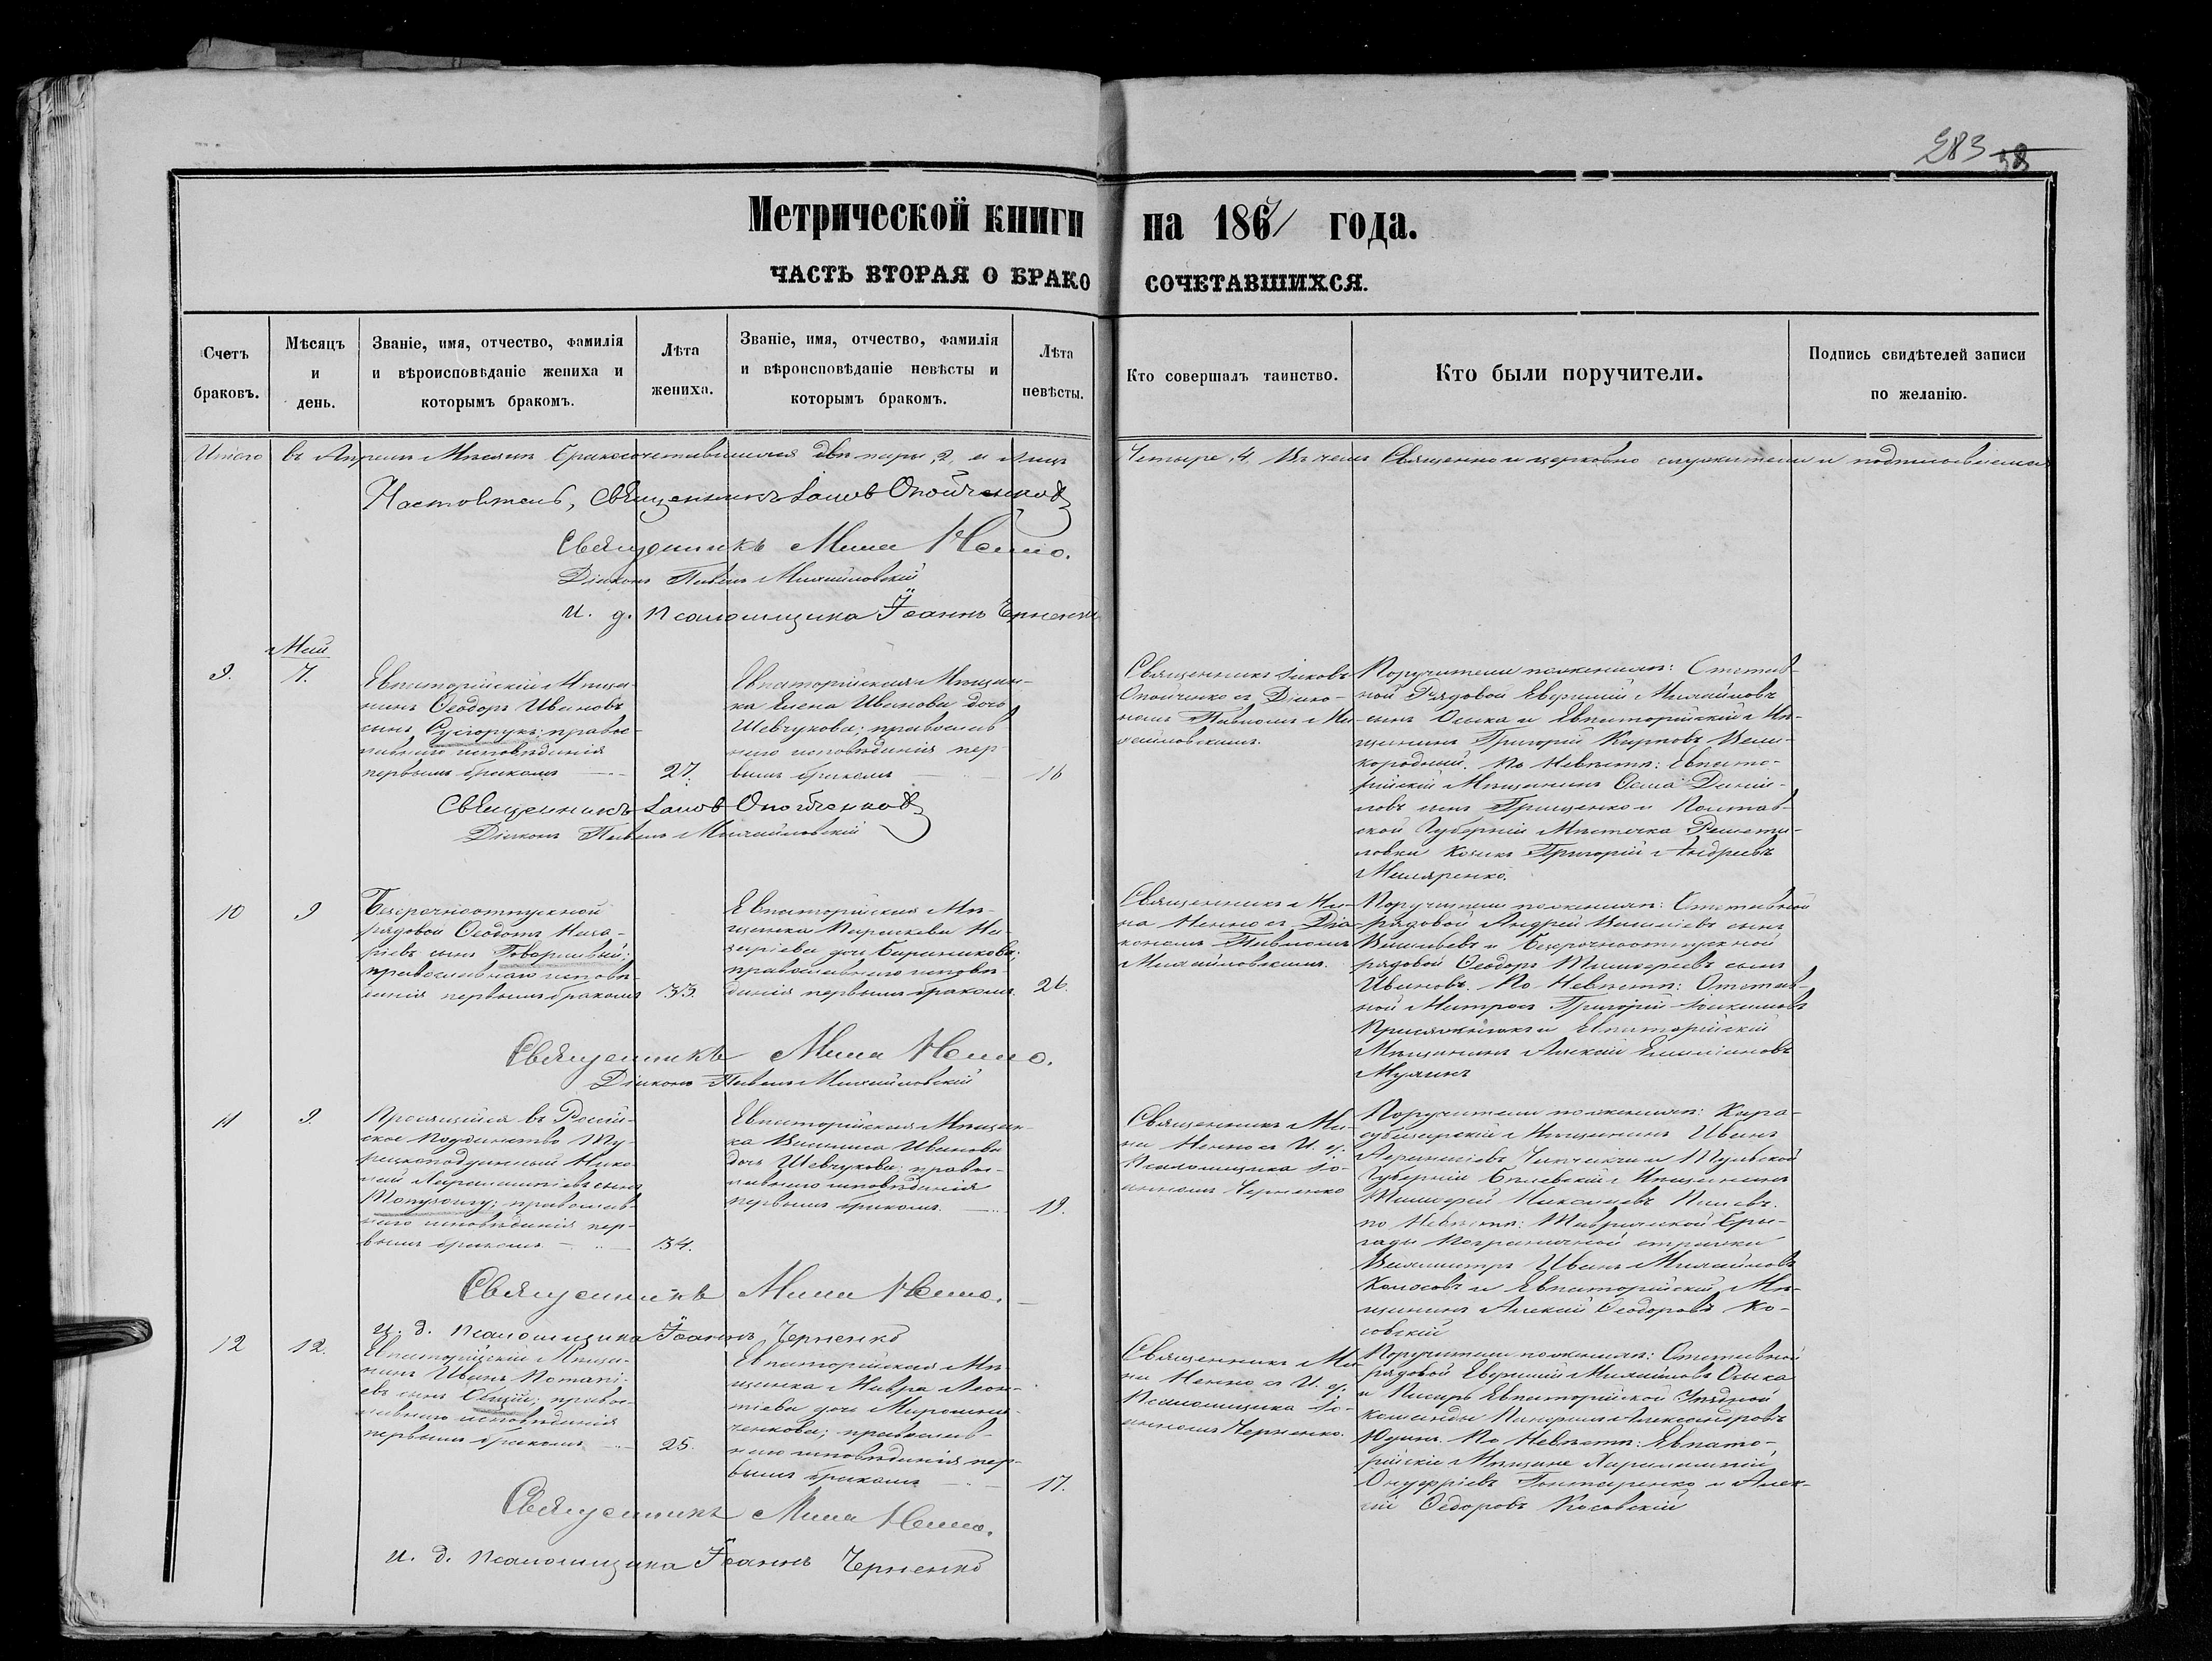 283 38
Метрической книги на 1867 года.
ЧАСТЬ ВТОРАЯ О БРАКО СОЧЕТАВШИХСЯ.
Счетъ браковъ.
Мѣсяцъ и день.
Званіе, имя, отчество, фамилія
и вѣроисповѣданіе жениха и
которымъ бракомъ.
Лѣта жениха.
Званіе, имя, отчество, фамилія
и вѣроисповѣданіе невѣсты и
которымъ бракомъ.
Лѣта невѣсты.
Кто совершалъ таинство.
Кто были поручители.
Подпись свидѣтелей записи
по желанію.
Итого въ Апрелѣ Мѣсяцѣ бракосочетавшихся двѣ пары, 2, и лицъ Четыре, 4, Въ чемъ Священно и церковно служители и подписываемся
Настоятель, Священникъ Іаковъ Опойченко
Священникъ Мина Ненно.
Діаконъ Павелъ Михайловскій
И. д. Псаломщика Іоаннъ Черненко
Май
9.
7.
Евпаторійскій Мѣща-
нинъ Ѳеодоръ Ивановъ
сынъ Сухорукъ; право-
славнаго исповѣданія
первымъ бракомъ
27.
Евпаторійская Мѣщан-
ка Елена Иванова дочь
Шевчукова; православ
наго исповѣданія пер
вымъ бракомъ
16
Священникъ Іаковъ
Опойченко съ Діако-
номъ Павломъ Ми-
хайловскимъ.
Поручители по женихѣ: Отстав-
ной Рядовой Евфимій Михайловъ
сынъ Оська и Евпаторійскій Мѣ-
щанинъ Григорій Карповъ Вели-
кородный. По Невѣстѣ: Евпато-
рійскій Мѣщанинъ Ѳома Даніи-
ловъ сынъ Грищенко и Полтав-
ской Губерніи Мѣстечка Решети-
ловки Козакъ Григорій Андреевъ
Миляренко.
Священникъ Іаковъ Опойченко
Діаконъ Павелъ Михайловскій
10
9
Безсрочноотпускной
рядовой Ѳеодотъ Наза-
ріевъ сынъ Говорливый;
православнаго исповѣ-
данія первымъ бракомъ
33.
Евпаторійская Мѣ-
щанка Параскева На-
заріева дочь Баранникова;
православнаго исповѣ-
данія первымъ бракомъ.
26.
Священникъ Ми-
на Ненно съ Діа-
кономъ Павломъ
Михайловскимъ.
Поручители по женихѣ: Отставной
рядовой Андрей Васильевъ сынъ
Васильевъ и Безсрочноотпускной
рядовой Ѳеодоръ Тимоѳеевъ сынъ
Ивановъ. По Невѣстѣ: Отстав-
ной Матросъ Григорій Іоакимовъ
Присяжнюкъ и Евпаторійскій
Мѣщанинъ Алексій Емиліановъ
Мухинъ
Священникъ Мина Ненно.
Діаконъ Павелъ Михайловскій
11
9.
Просящійся въ Россій-
ское Подданство Ту-
рецкоподданный Нико-
лай Харалампіевъ сынъ
православ-
наго исповѣданія пер-
вымъ бракомъ
34.
Евпаторійская Мѣщан-
ка Василиса Иванова
дочь Шевчукова; право-
славнаго исповѣданія
первымъ бракомъ.
19.
Священникъ Ми-
на Ненно съ И. д.
Псаломщика Іо-
анномъ Черненко
Поручители по женихѣ: Кара-
субазарскій Мѣщанинъ Иванъ
и Тульской
Губерніи Бѣлевскій Мѣщанинъ
Тимоѳей Николаевъ
по Невѣстѣ: Таврической Бри-
гады Пограничной стражи
Вахмистръ Иванъ Михайловъ
Колосовъ и Евпаторійскій Мѣ-
щанинъ Алексій Ѳеодоровъ Ко-
совскій
Священникъ Мина Ненно.
И. д. Псаломщика Іоаннъ Черненко
12
12.
Евпаторійскій Мѣща-
нинъ Иванъ Потапі-
евъ сынъ Общій; право-
славнаго исповѣданія
первымъ бракомъ
25.
Евпаторійская Мѣ-
щанка Мавра Леон-
тіева дочь Мирошни-
ченкова; православ-
наго исповѣданія пер-
вымъ бракомъ
17.
Священникъ Ми-
на Ненно съ И. д.
Псаломщика Іо-
анномъ Черненко.
Поручители по женихѣ: Отставной
рядовой Евфимій Михайловъ Оська
и Писарь Евпаторійской Уѣздной
Команды Александровъ
Юдинъ. По Невѣстѣ: Евпато-
рійскіе Мѣщане Харалампій
Онуфріевъ Гонтаренко и Алек-
сій Ѳедоровъ Косовскій
Священникъ Мина Ненно.
И. д. Псаломщика Іоаннъ Черненко